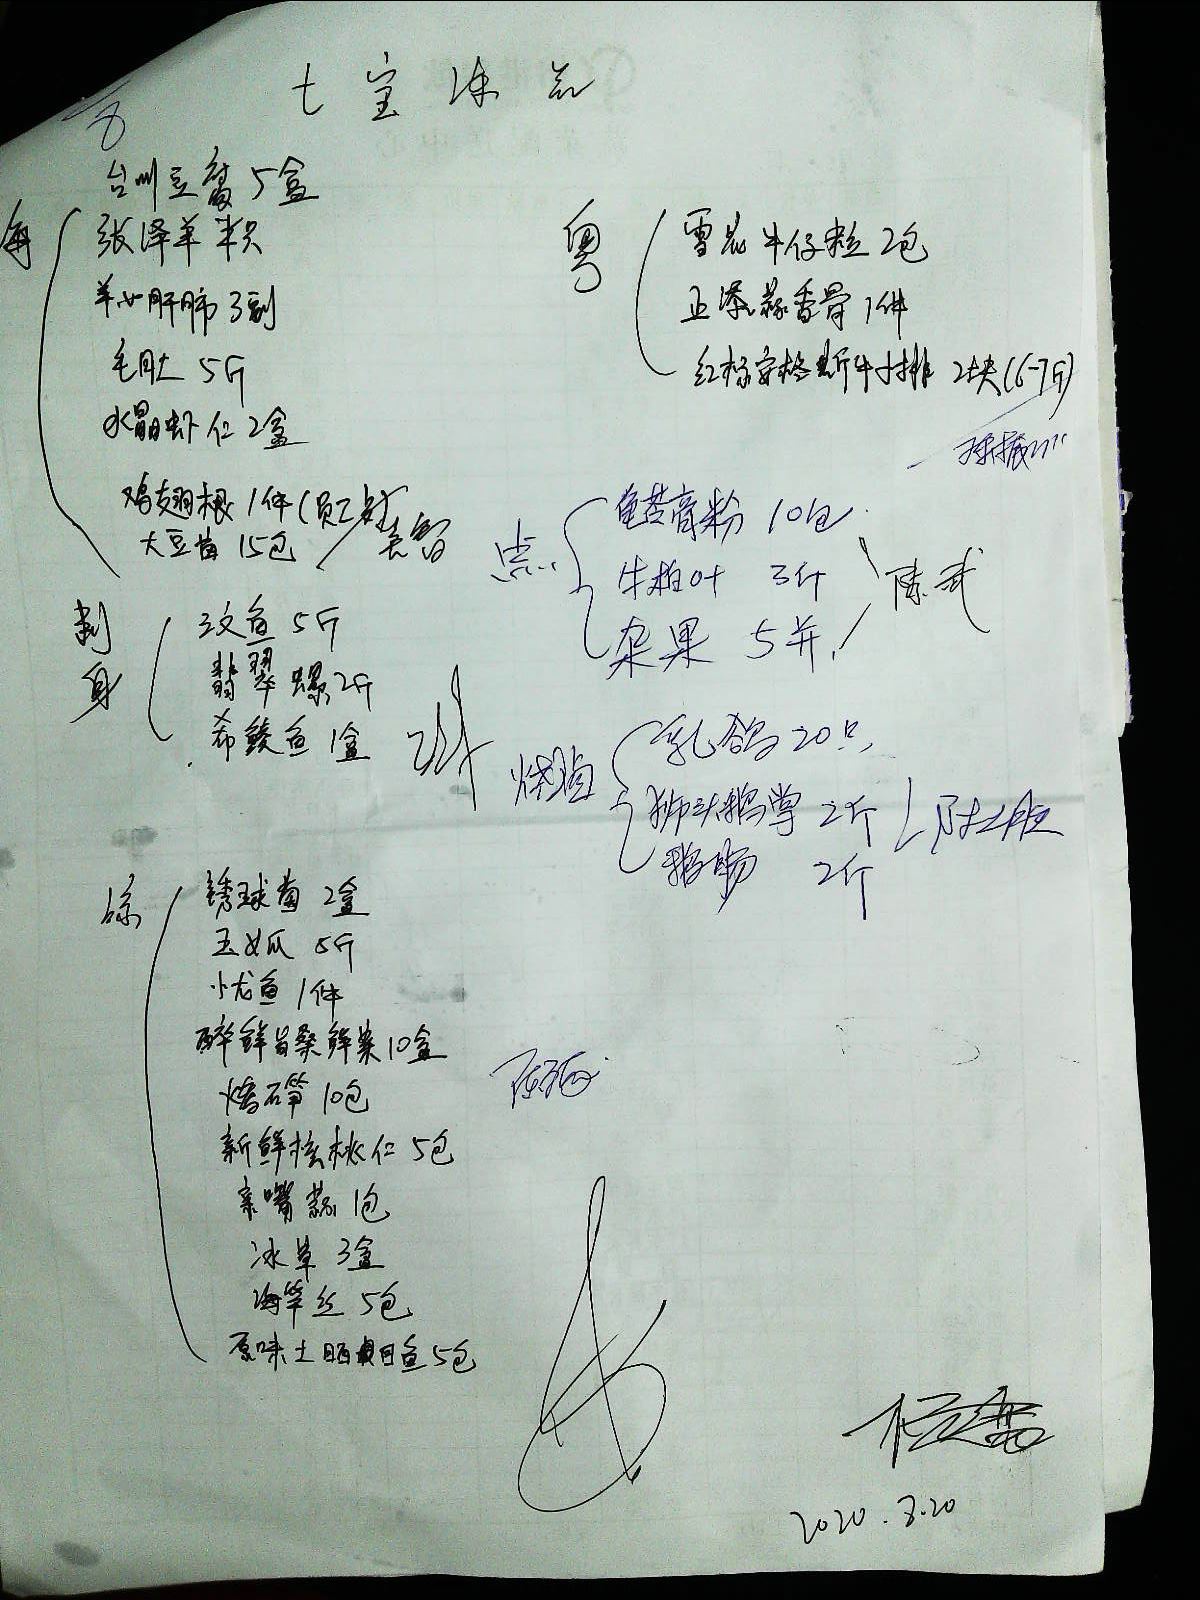 七宝冻品
台州豆腐 5盒
海
张泽羊 半只
羊心肝肺 3副
毛肚 5斤
水晶虾仁 2盒
鸡翅根 1件(员工餐)
大豆苗 15包
刺身
三文鱼 5斤
翡翠螺 2斤
希鲮鱼 1盒
凉
绣球菌 2盒
玉女瓜 5斤
小尤鱼 1件
10盒
10包
新鲜核桃仁 5包
亲嘴蒜 1包
冰草 3盒
海笋丝 5包
原味土晒鱼 5包
粤
雪花牛仔粒 2包
正添蒜香骨 1件
红标安格斯牛小排 2块(6-7斤)
点
龟苓膏粉 10包
牛柏叶 3斤
杂果 5并
陈武
烧腊
乳鸽 20只
狮头鹅掌 2斤
鹅肠 2斤
2020.8.20